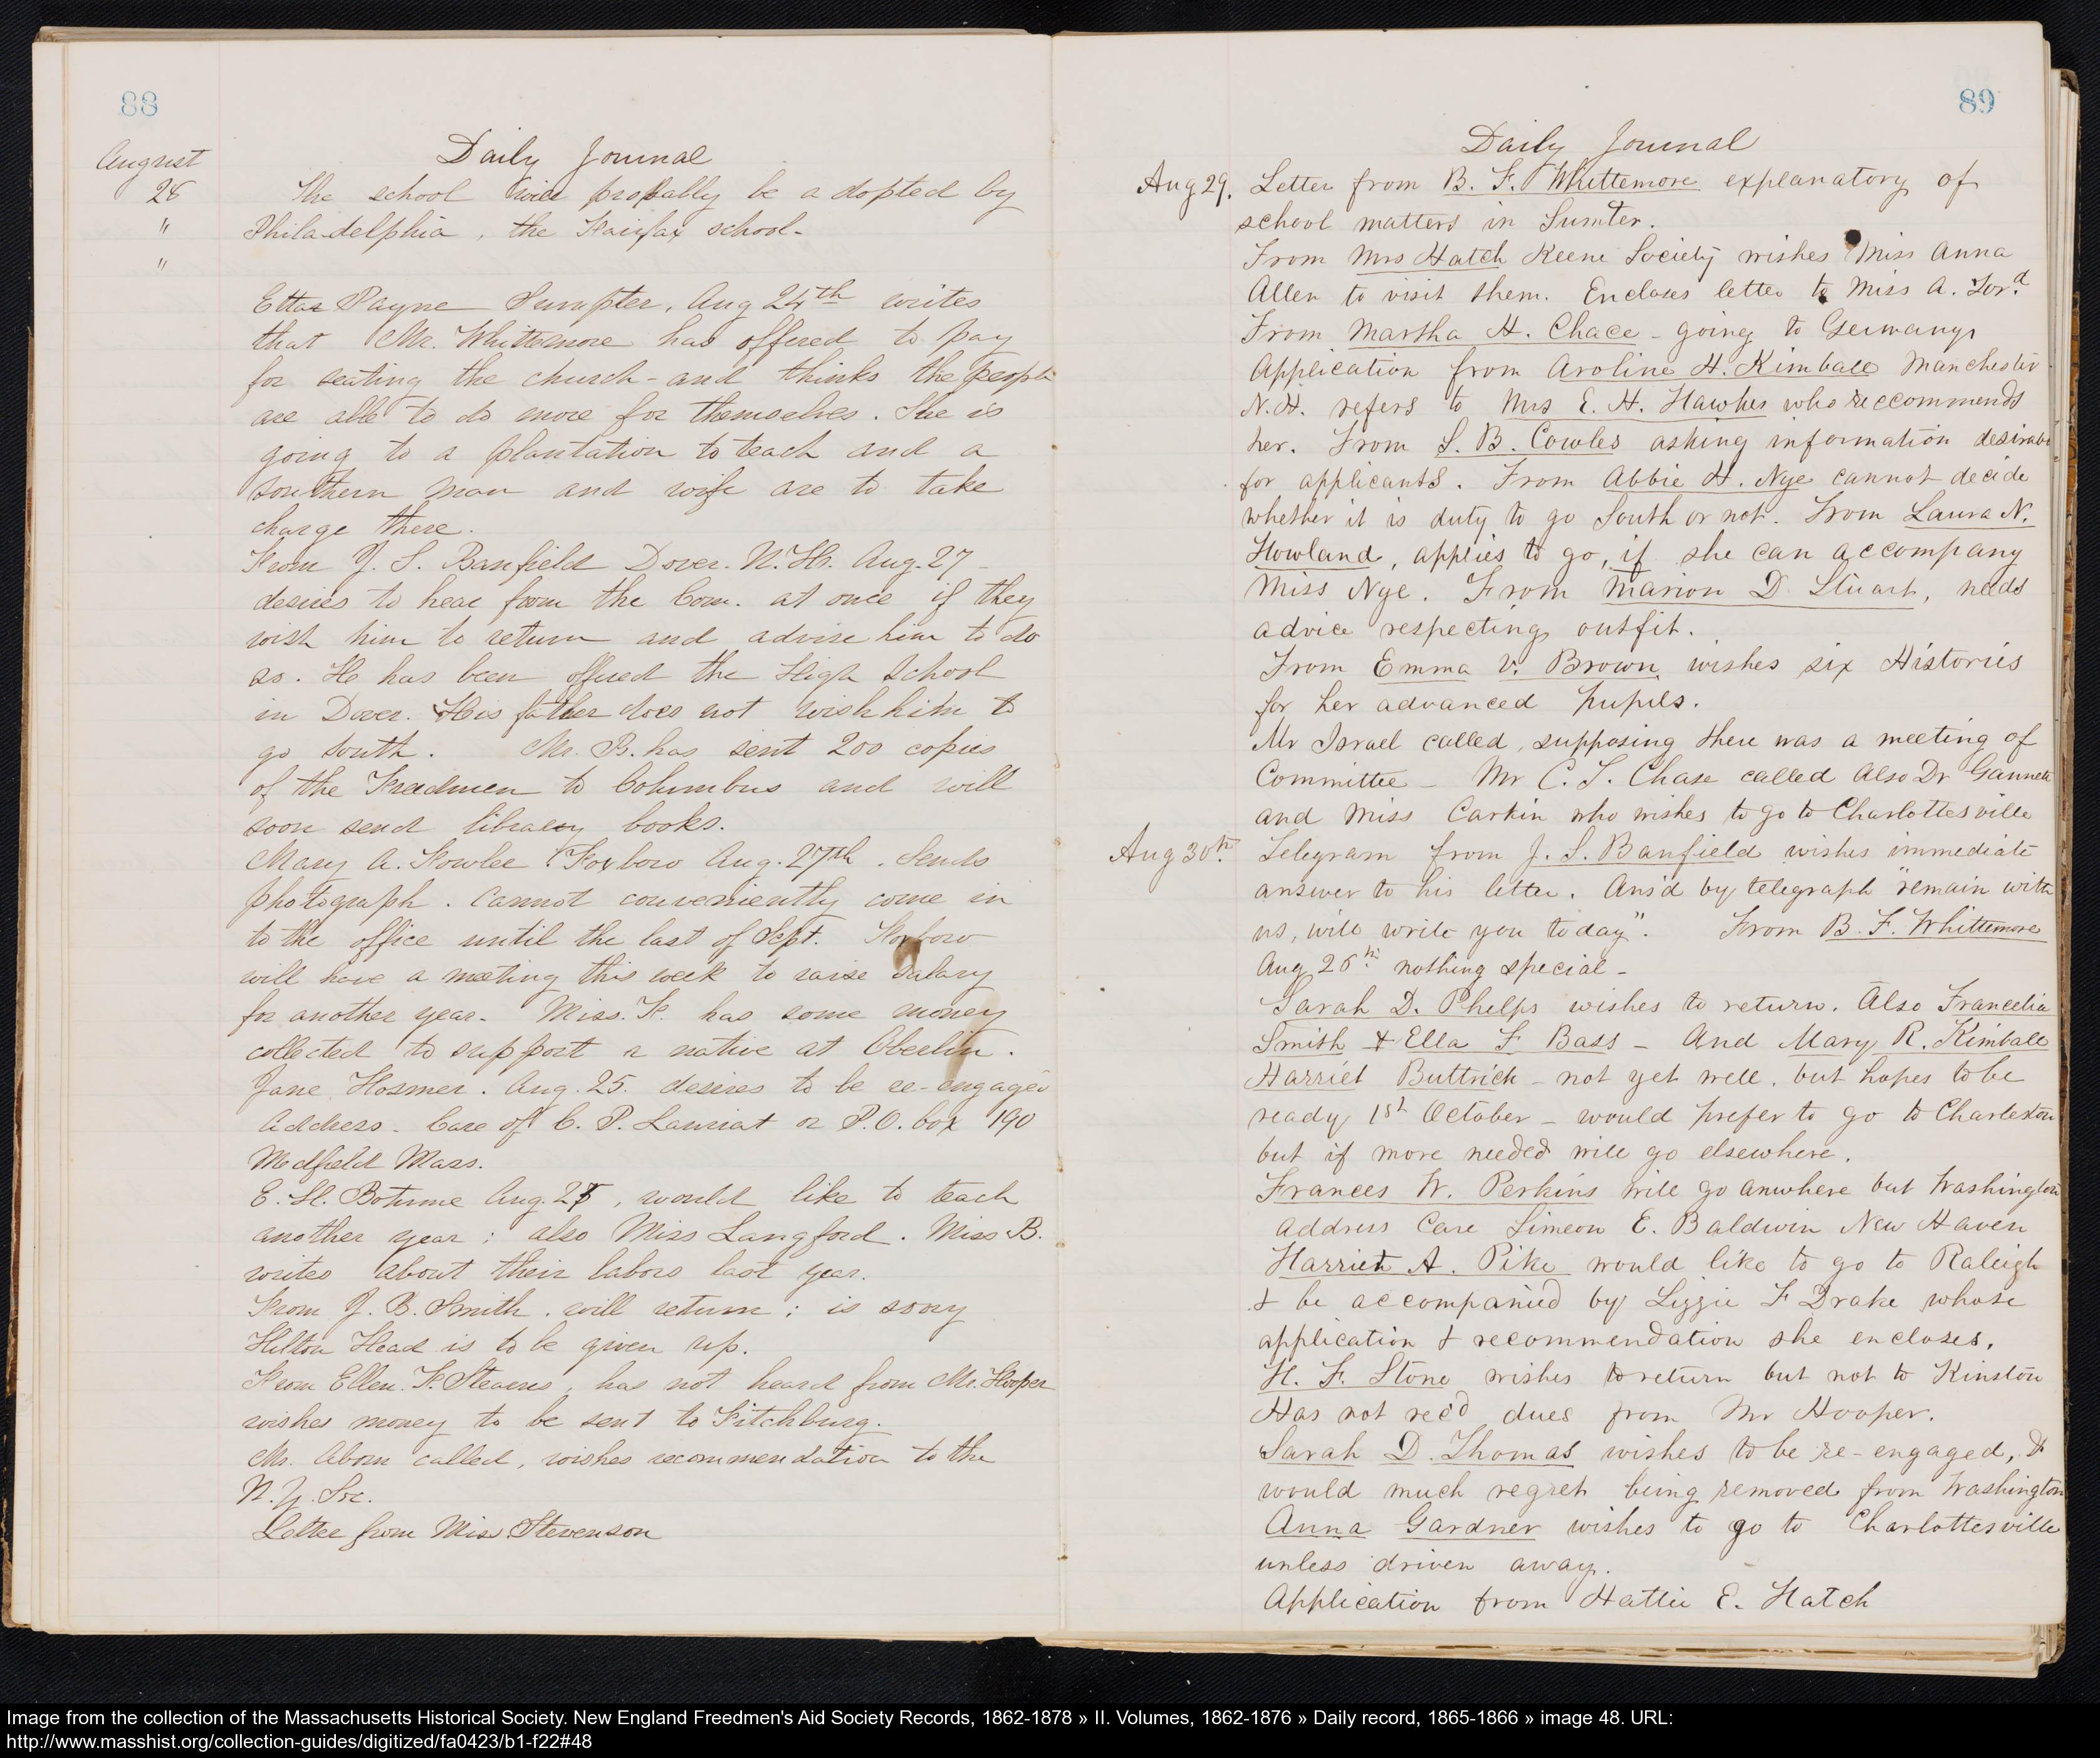 88
Daily Journal
August
28 The school will probably be adopted by
" Philadelphia, the Fairfax school-
"
Etta Payne Sumpter, Aug 24th writes
that Mr. Whittemore has offered to pay
for seating the church - and thinks the people
are able to do more for themselves. She is
going to a plantation to teach and a
Southern man and wife are to take
charge there.
From J. S. Banfield Dover. N.H. Aug. 27 -
desires to hear from the Com. at once if they
wish him to return and advise him to do
so. He has been offered the High School
in Dover. His father does not wish him to
go South. Mr. B. has sent 200 copies
of the Freedmen to Columbus and will
soon send library books.
Mary A. Fowler Foxboro Aug. 27th. Sends
photograph. Cannot conveniently come in
to the office until the last of Sept. Foxboro
will have a meeting this week to raise salary
for another year. Miss. F. has some money
collected to support a native at Oberlin.
Jane Hosmer. Aug. 25. desires to be re-engaged
Address. Care of C. P. Lauriat or P.O. box 190
Medfield Mass.
E. H. Botume Aug. , would like to teach
another year; also Miss Langford. Miss B.
writes about their labors last year.
From J. B. Smith. will return; is sorry
Hilton Head is to be given up.
From Ellen. F. Stearns, has not heard from Mr. Hooper
wishes money to be sent to Fitchburg.
Mr. Aborn called, wishes recommendation to the
N. Y. Soc.
Letter from Miss Stevenson
89
Daily Journal
Aug 29. Letter from B. F. Whittemore explanatory of
school matters in Sumter.
From Mrs Hatch Keene Society wishes Miss Anna
Allen to visit them. Encloses letter to Miss A. For.d
From Martha H. Chace - going to Germany
Application from Aroline H. Kimball Manchester
N.H. refers to Mrs E. H. Hawkes who reccommends
her. From S. B. Cowles asking information desirabl
for applicants. From Abbie H. Nye cannot decide
whether it is duty to go South or not. From Laura N.
Howland, applies to go, if she can accompany
Miss Nye. From Marion D. Stuart, needs
advice respecting outfit.
From Emma V. Brown, wishes six Histories
for her advanced pupils.
Mr Israel called, supposing there was a meeting of
Committee - Mr C. S. Chase called Also Dr Gannett
and Miss Carkin who wishes to go to Charlottesville
Aug 30th. Telegram from J. S. Banfield wishes immediate
answer to his letter. Ans'd by telegraph "remain with
us, will write you today". From B. F. Whittemore
Aug 26th nothing special -
Sarah D. Phelps wishes to return. Also Francelia
Smith & Ella F Bass - And Mary R. Kimball
Harriet Buttrick - not yet well, but hopes to be
ready 1st October - would prefer to go to Charleston
but if more needed will go elsewhere.
Frances W. Perkins will go anwhere but Washington
Address Care Simeon E. Baldwin New Haven
Harriet A. Pike would like to go to Raleigh
& be accompanied by Lizzie F Drake whose
application & recommendation she encloses.
H. F. Stone wishes to return but not to Kinston
Has not rec'd dues from Mr Hooper.
Sarah D. Thomas wishes to be re-engaged, &
would much regret being removed from Washington
Anna Gardner wishes to go to Charlottesville
unless driven away.
Application from Hattie E. Hatch
Image from the collection of the Massachusetts Historical Society. New England Freedmen's Aid Society Records, 1862-1878 » II. Volumes, 1862-1876 » Daily record, 1865-1866 » image 48. URL:
http://www.masshist.org/collection-guides/digitized/fa0423/b1-f22#48